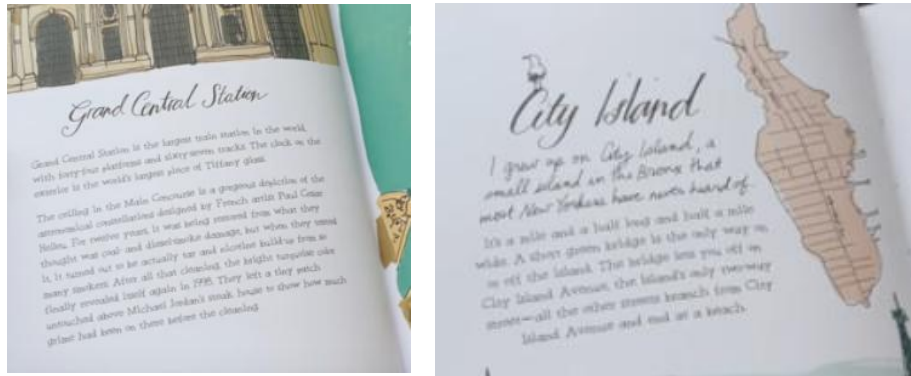 Grand Central Station
Grand Central Station is the largest train station in the world,
with forty-four platforms and sixty-seven tracks. The clock on the
exterior is the world's largest piece of Tiffany glass.
The ceiling in the Main Concourse is a gorgeous depiction of the
astronomical constellations designed by French artist Paul César
Helleu. For twelve years, it was being restored from what they
thought was coal- and diesel-smoke damage, but when they tested
it, it turned out to be actually tar and nicotine buildup from so
many smokers. After all that cleaning, the bright turquoise color
finally revealed itself again in 1998. They left a tiny patch
untouched above Michael Jordan's steak house to show how much
grime had been on there before the cleaning.
City Island
I grew up on City Island, a
small island in the Bronx that
most New Yorkers have never heard of.
It's a mile and a half long and half a mile
wide. A short green bridge is the only way on
or off the island. The bridge lets you off on
City Island Avenue, the island's only two-way
street—all the other streets branch from City
Island Avenue and end at a beach.